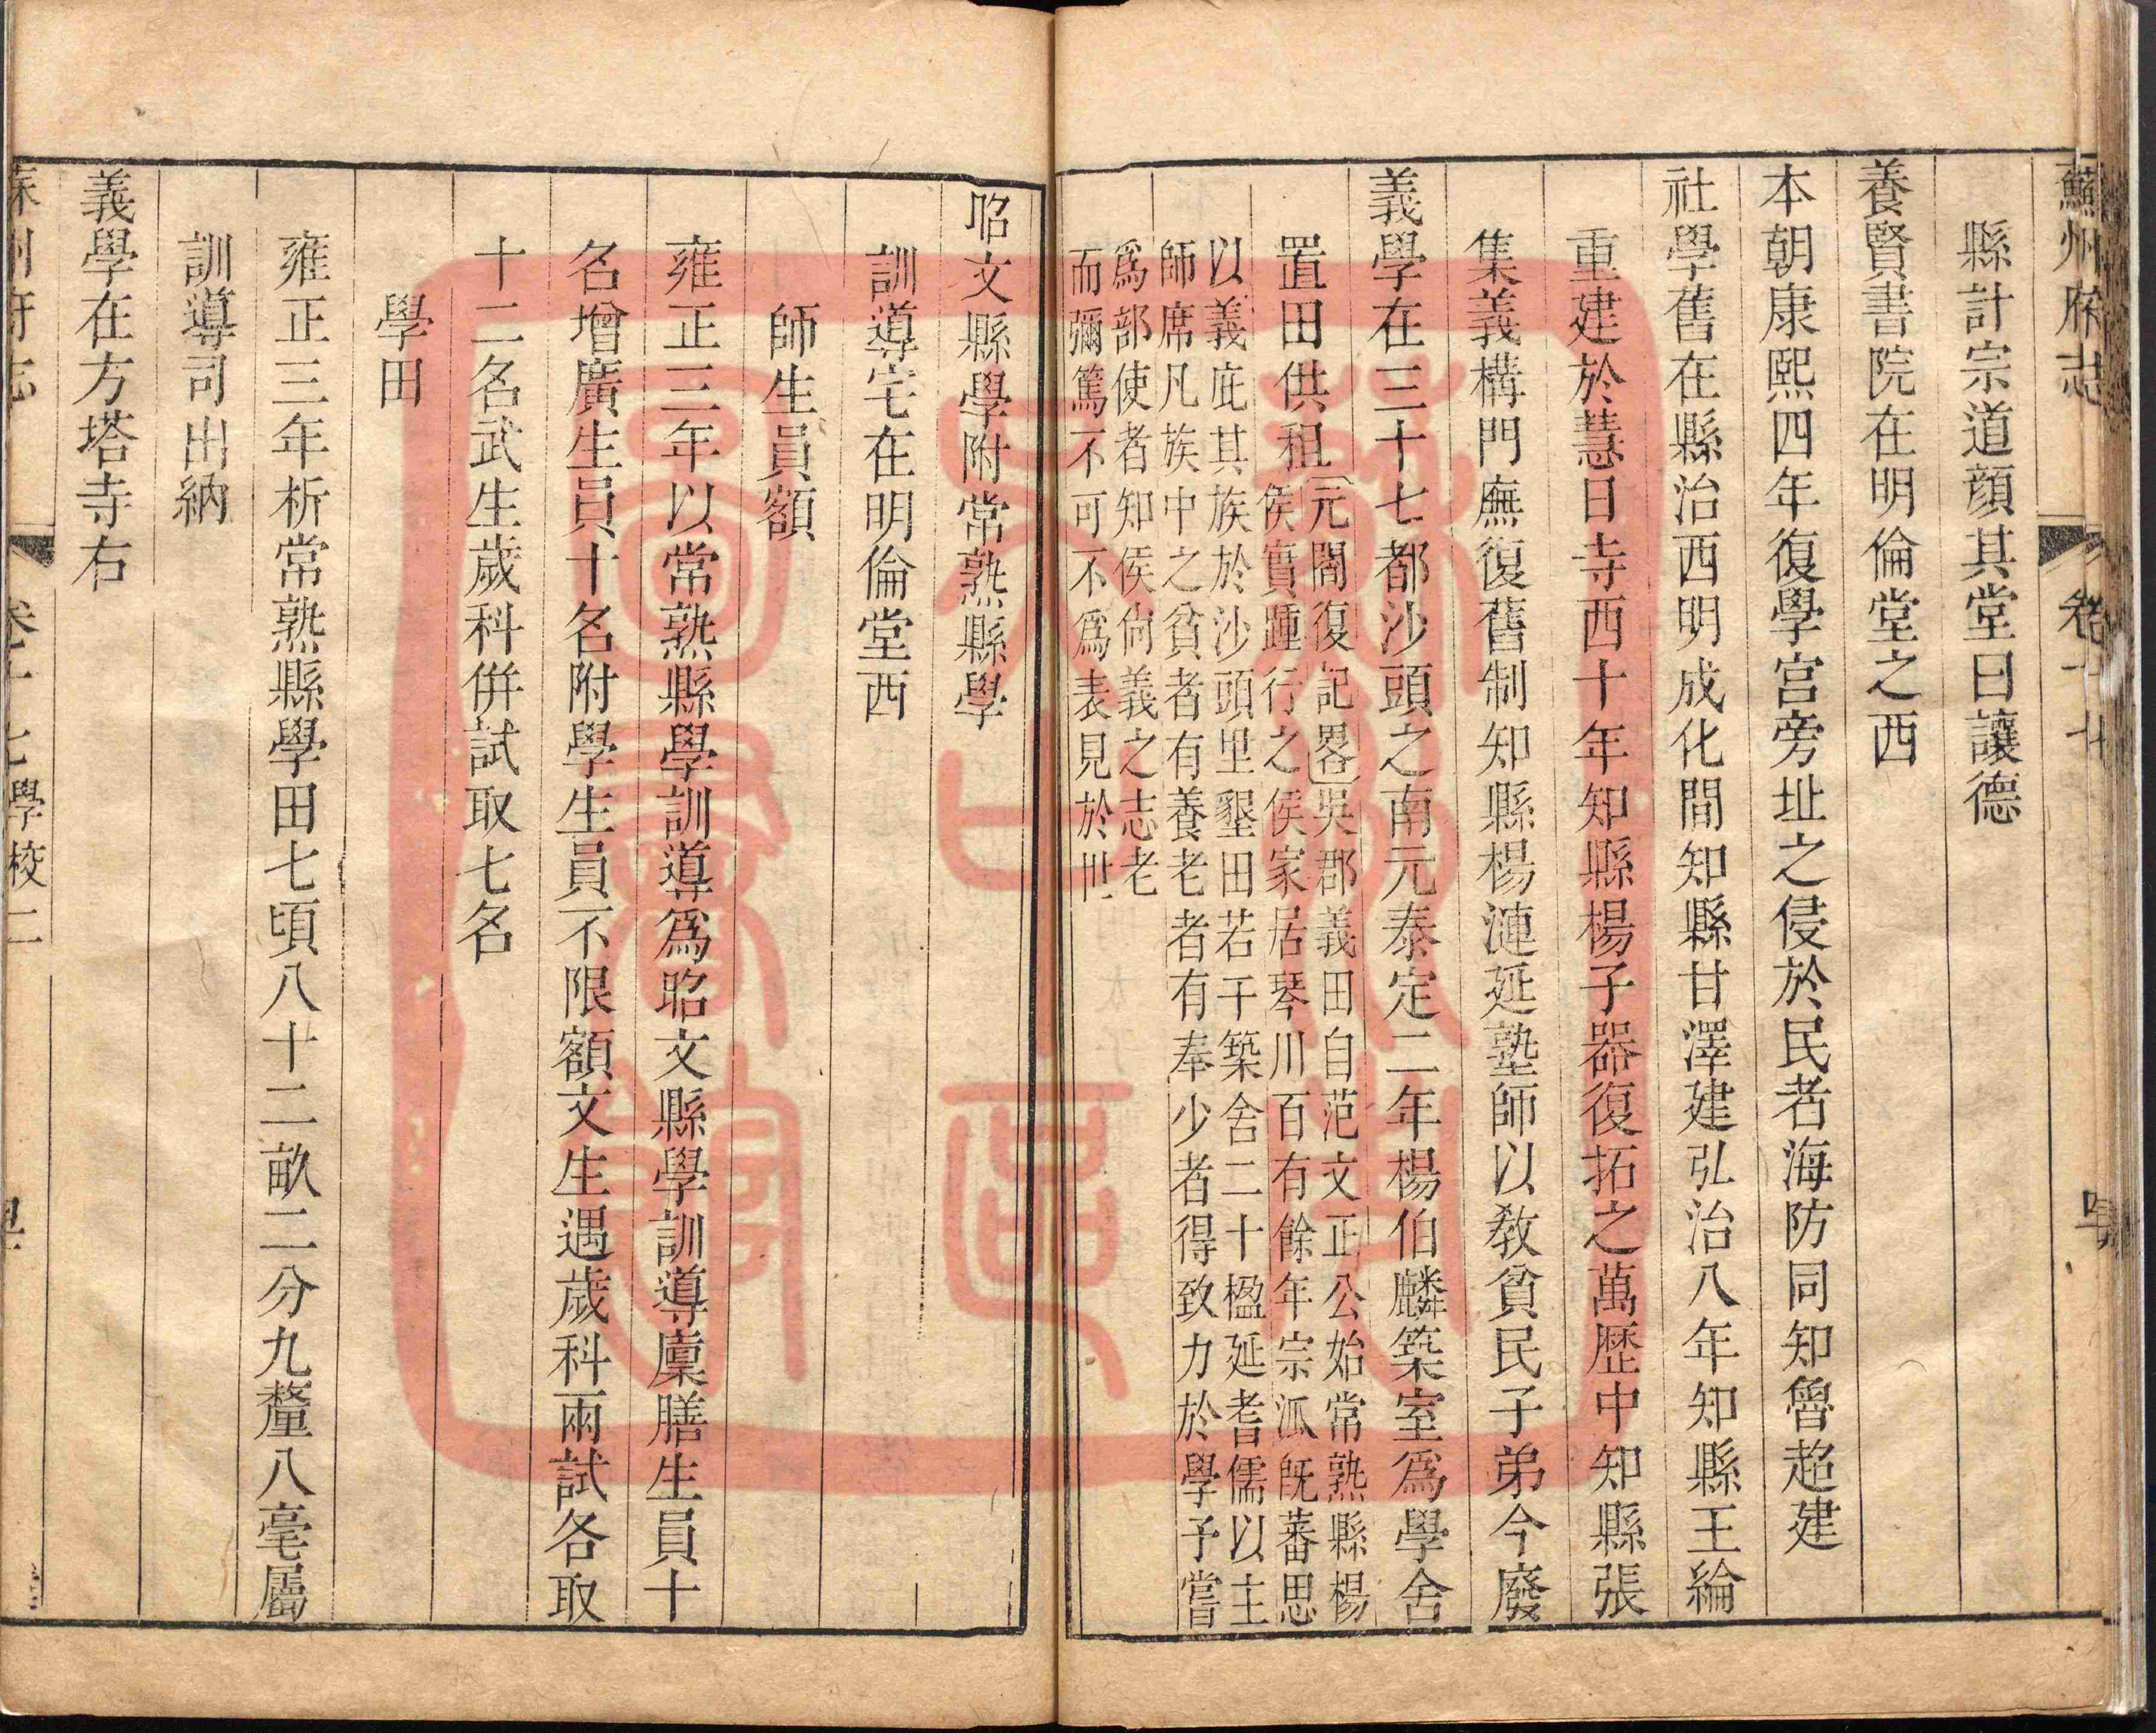 蘇州府志
縣計宗道顏其堂曰讓德
養賢書院在明倫堂之西
本朝康熙四年復學宮旁址之侵於民者海防同知魯超建
社學舊在縣治西明成化間知縣甘澤建弘治八年知縣王綸
重建於慧日寺西十年知縣楊子器復拓之萬歷中知縣張
集義構門廡復舊制知縣楊漣延塾師以敎貧民子弟今廢
義學在三十七都沙頭之南元泰定二年楊伯麟築室爲學舍
置田供租
元閻復記畧吳郡義田自范文正公始常熟縣楊
侯實踵行之侯家居琴川百有餘年宗派旣蕃思
以義庇其族於沙頭里墾田若干築舍二十楹延耆儒以主
師席凡族中之貧者有養老者有奉少者得致力於學予嘗
爲部使者知侯尙義之志老
而彌篤不可不爲表見於世
昭文縣學附常熟縣學
訓導宅在明倫堂西
師生員額
雍正三年以常熟縣學訓導爲昭文縣學訓導廩膳生員十
名增廣生員十名附學生員不限額文生遇歲科兩試各取
十二名武生歲科倂試取七名
學田
雍正三年析常熟縣學田七頃八十二畝二分九釐八毫屬
訓導司出納
義學在方塔寺右
蘇州府志 卷十七學校二